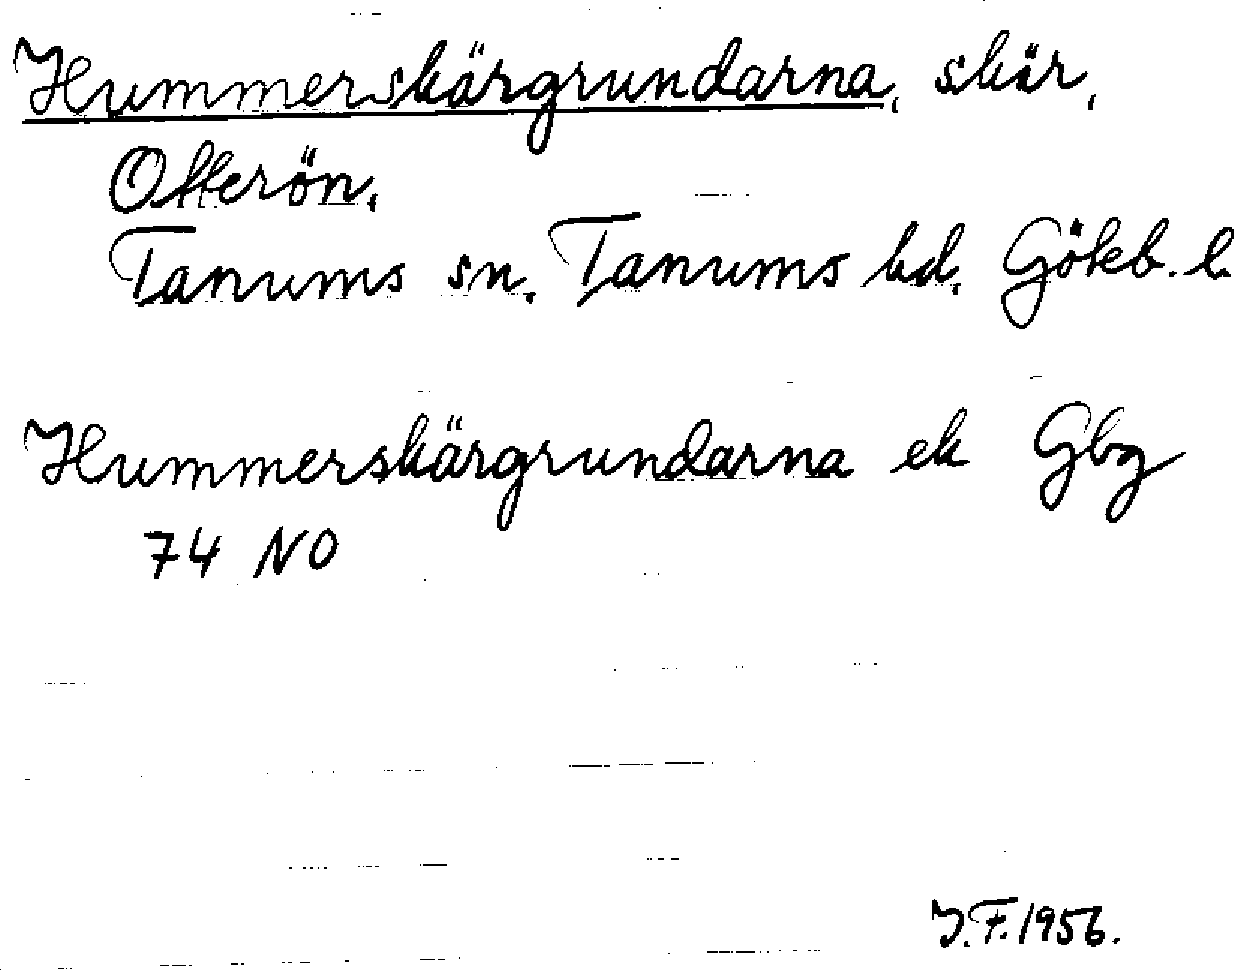 Hummerskärgrundarna, skär,
Otterön,
Tanums sn, Tanums hd, Gökb. l.
Hummerskärgrundarna ek Gbg
74 NO
J.F. 1956.